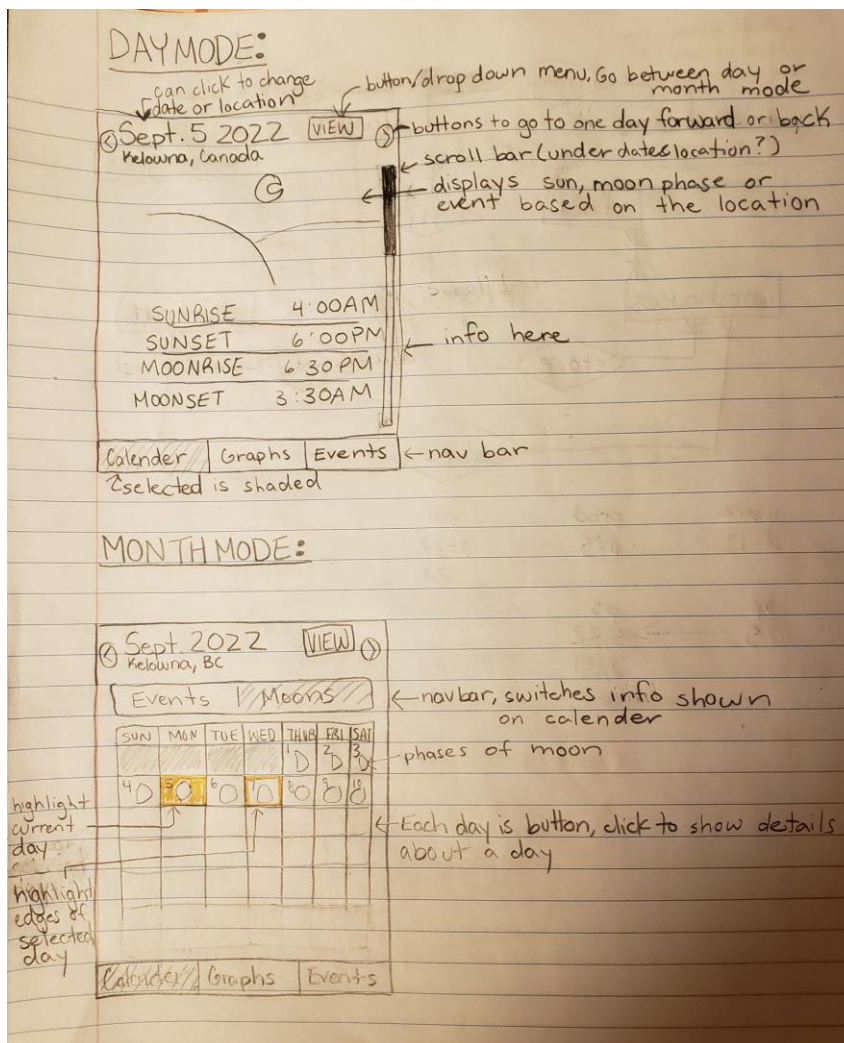 DAY MODE:
can click to change
date or location
button/drop down menu, Go between day or
month mode
< Sept. 5 2022 VIEW >
Kelowna, Canada
buttons to go to one day forward or back
scroll bar (under date&location?)
displays sun, moon phase or
event based on the location
SUNRISE 4:00AM
SUNSET 6:00PM
info here
MOONRISE 6:30 PM
MOONSET 3:30AM
Calender Graphs Events
nav bar
selected is shaded
MONTH MODE:
< Sept. 2022 VIEW >
Kelowna, BC
Events Moons
navbar, switches info shown
on calender
SUN MON TUE WED THUR FRI SAT
1 2 3
phases of moon
4 5 6 7 8 9 10
highlight
current
day
Each day is button, click to show details
about a day
highlight
edges of
selected
day
Calender Graphs Events